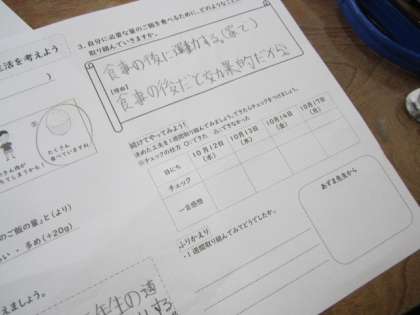 活を考えよう
3. 自分に必要な量のご飯を食べるために、どのようなこと
取り組んでいきますか。
食事の後に運動する。(家で)
【理由】
食事の後だと効果的だから
②
たくさん
食べていますね
続けてやってみよう!
決めたことを1週間取り組んでみましょう。できたらチェックをつけましょう。
※チェックの仕方 ○:できた △:できなかった
日にち
10月12日
(水)
10月13日
(木)
10月14日
(金)
10月17日
(月)
チェック
一言感想
あずま先生から
ふりかえり
・1週間取り組んでみてどうでしたか。
のご飯の量」と(より)
い ・ 多め(+20g)
えましょう。
年生の